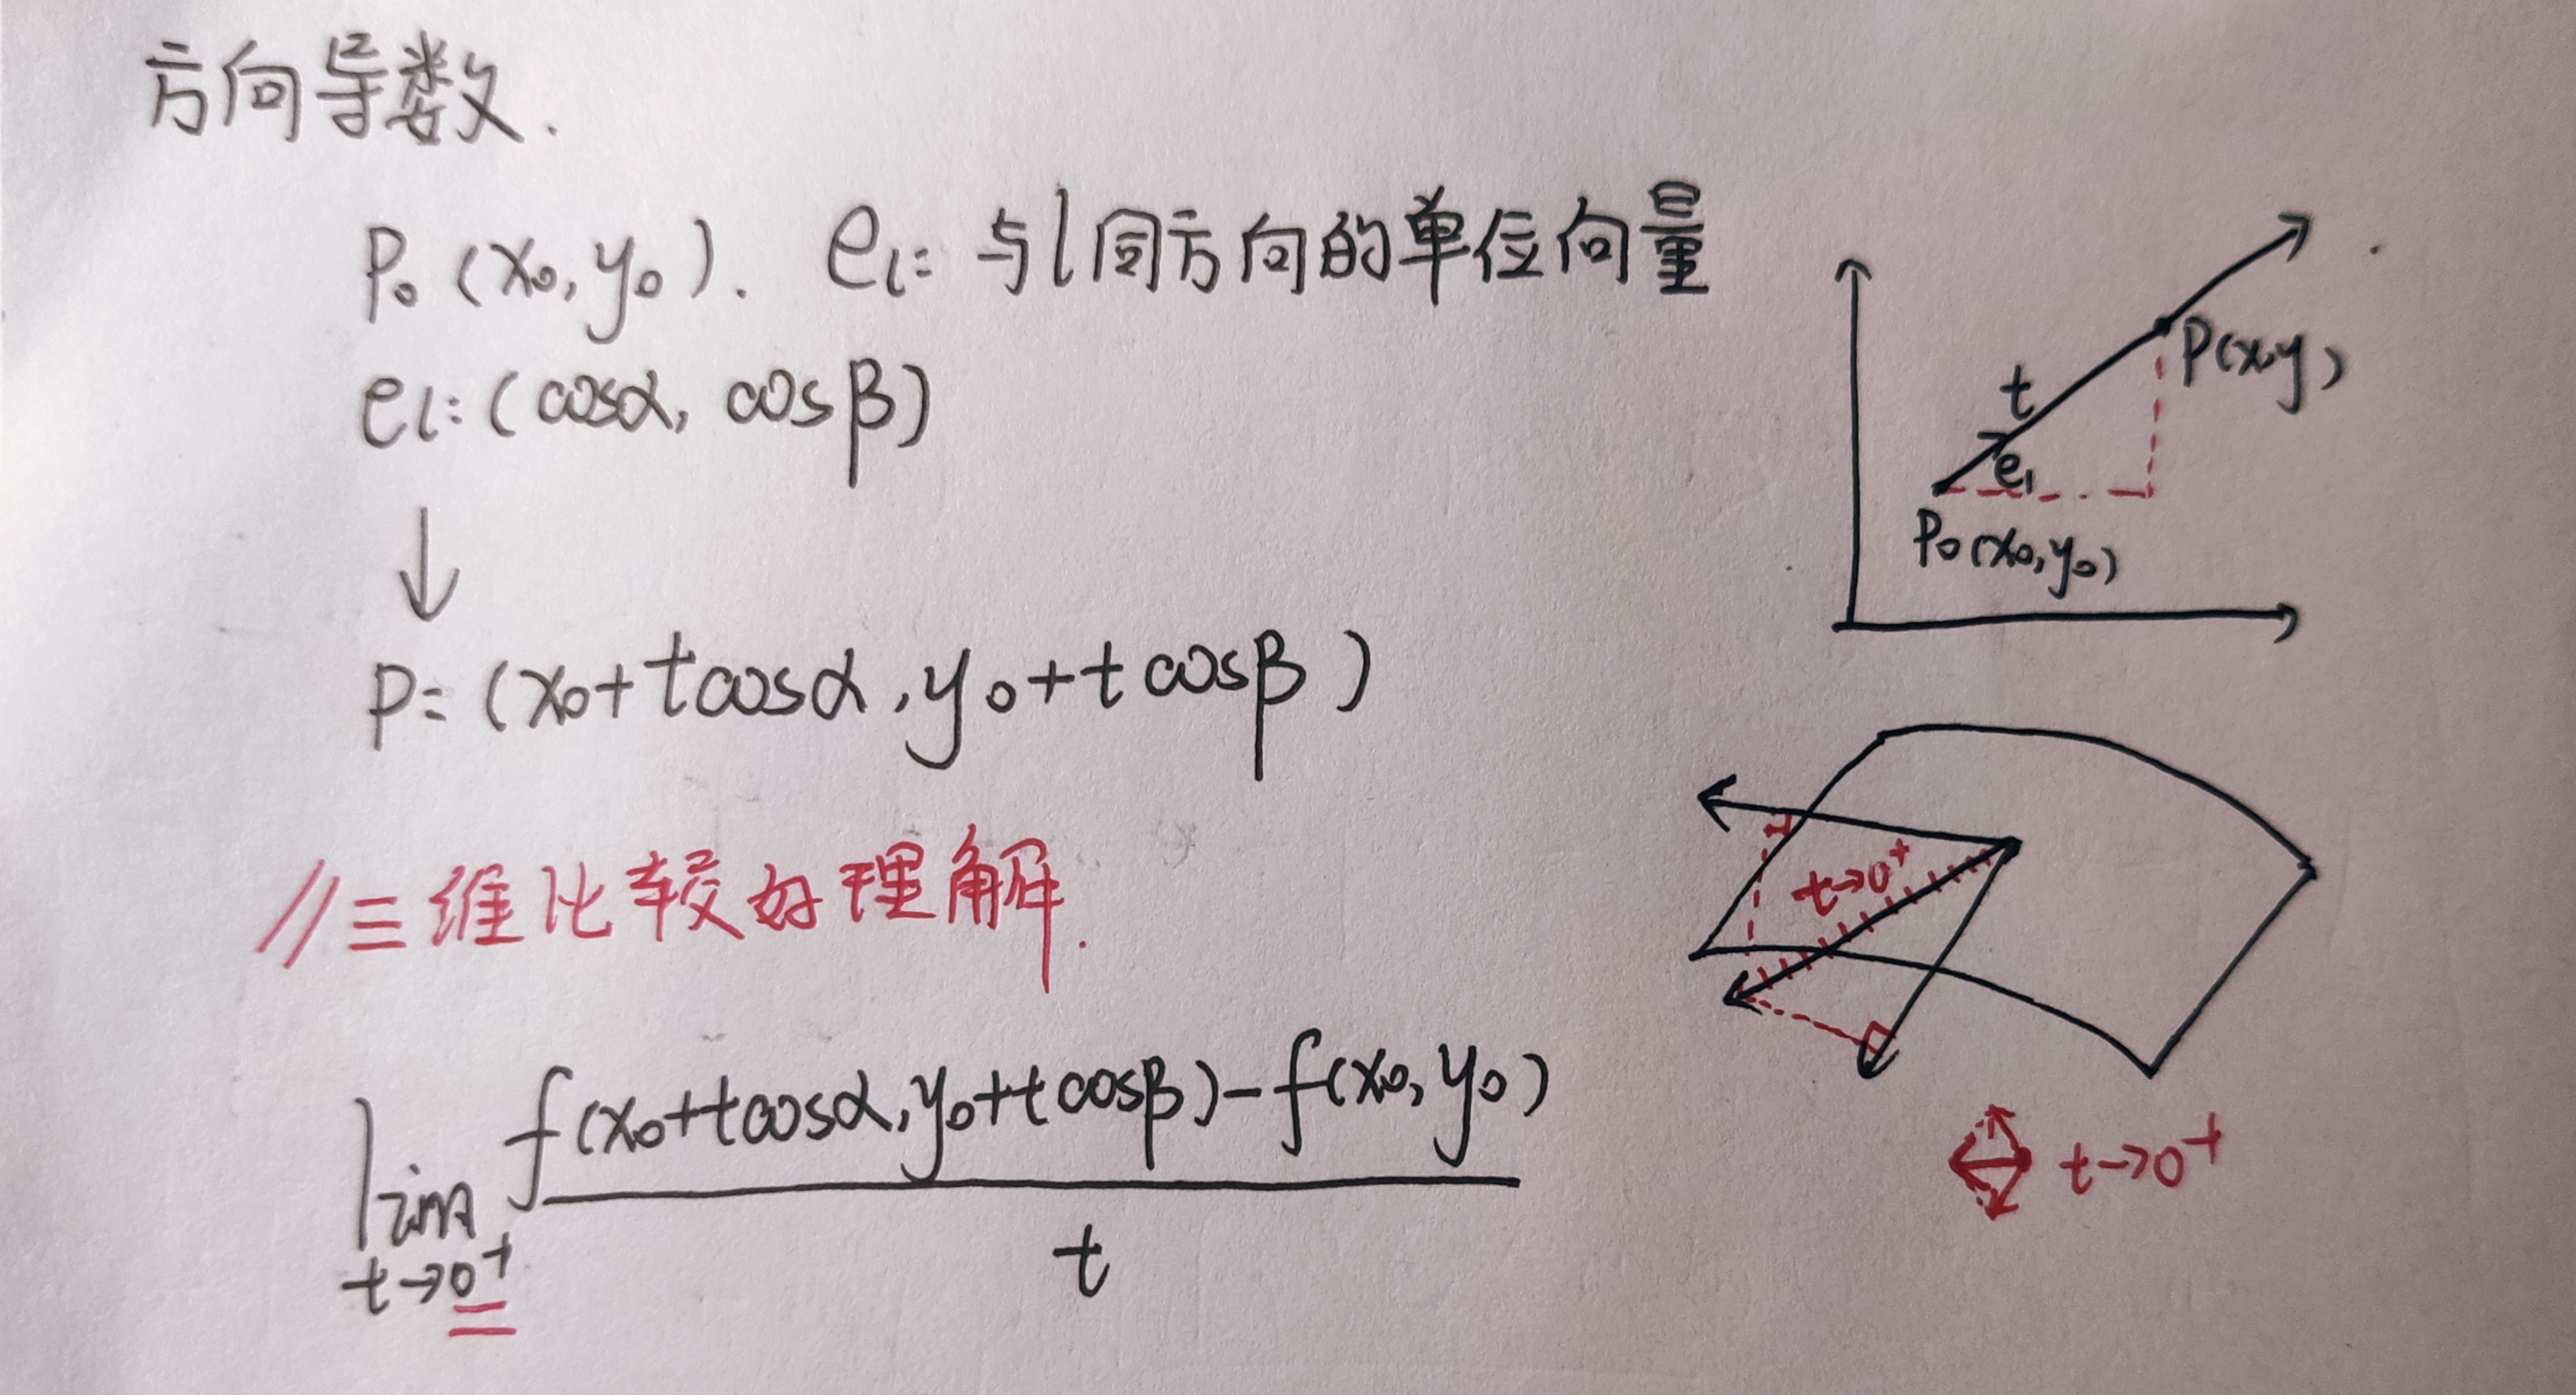 方向导数.
P₀(x₀,y₀). eₗ: 与l同方向的单位向量
eₗ:(cosα, cosβ)
↓
P=(x₀+tcosα,y₀+tcosβ)
//三维比较好理解.
lim f(x₀+tcosα,y₀+tcosβ)-f(x₀,y₀)
t→0⁺
t
P(x,y)
t
e₁
P₀(x₀,y₀)
t→0⁺
t→0⁺